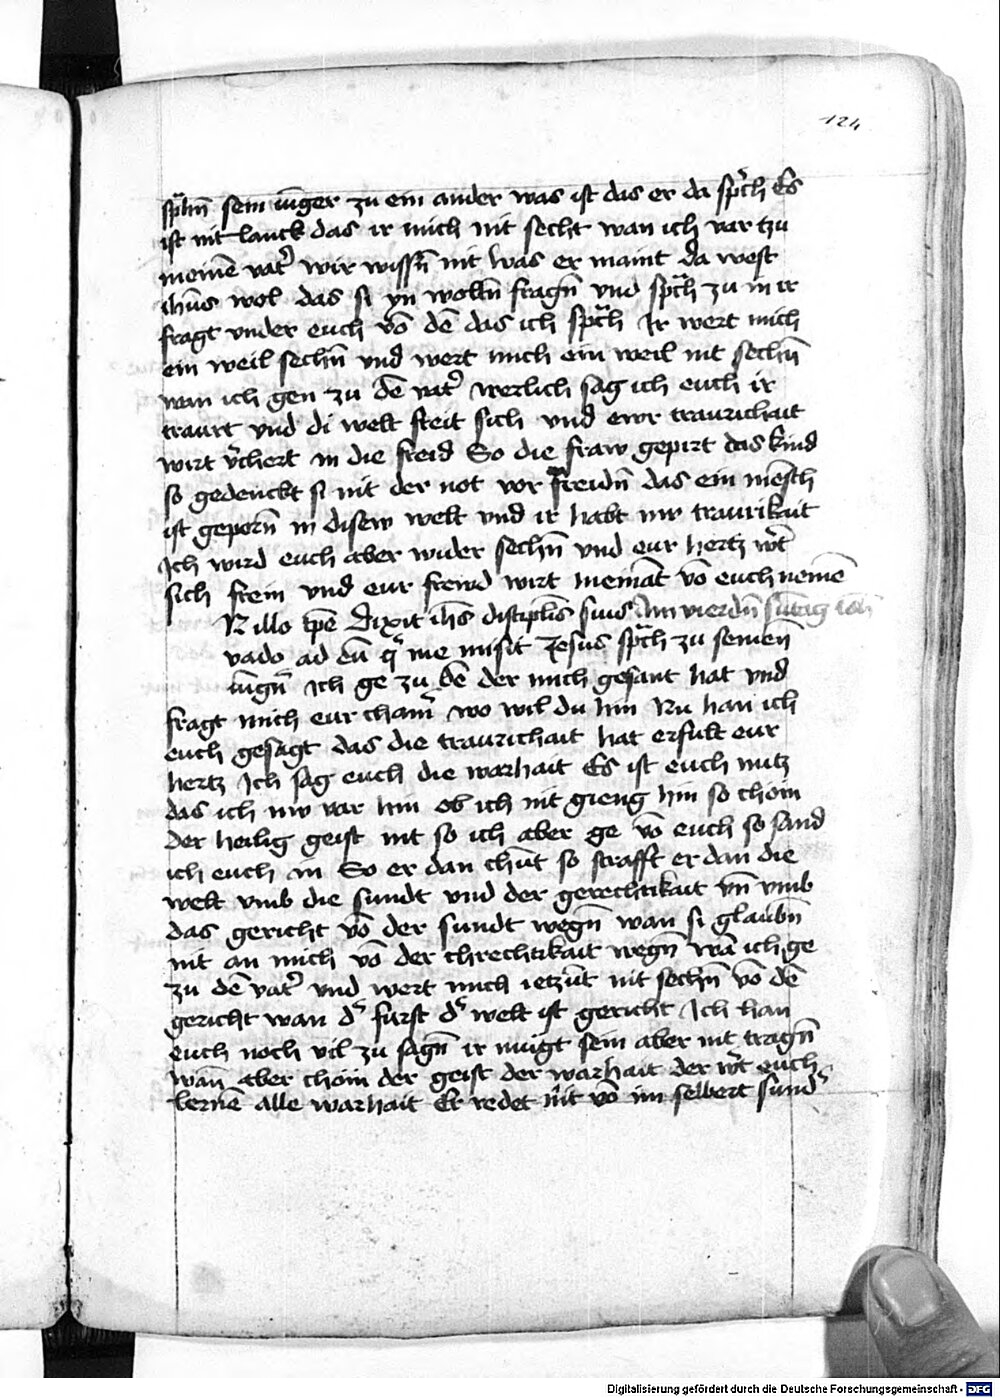 124
sp̃chn̄ sein iūnger zu ein ander was ist das er da sp̃ch Es
ist nit lanck das ir mich nit secht wan ich var tzu
meinē vat͛ wir wissn̄ nit was er maint da west
ih̄us wol das si yn wolln̄ fragn̄ vnd sp̃ch zu in ir
fragt vnder euch vō dē das ich sp̃ch Ir wert mich
ein weil sechn̄ vnd wert mich ein weil nit sechn̄
wan ich gen zu dē vat͛ werlich sag ich euch ir
traurt vnd di welt freit sich vnd ewr traurichait
wirt v͛chert in die freid So die fraw gepirt das kind
so gedenckt si nit der not vor freidn̄ das ein mēsch
ist geporn̄ in disew welt vnd ir habt nw traurikait
Ich wird euch aber wider sechn̄ vnd eur hertz w͛t
sich frein vnd eur frewd wirt niemāt vō euch nemē
N illo tp̄e dixit ih̄s discipul̄is suis Am vierdn̄ sūtag
vado ad eū q͛ me misit Jesus sp̃ch zu seinen̄
iūgn̄ Ich ge zu dē der mich gesant hat vnd
fragt mich eur chain͛ wo wil du hin Nu han ich
euch gesagt das die traurichait hat erfult eur
hertz Ich sag euch die warhait Es ist euch nutz
das ich nw var hin ob ich nit gieng hin so chom
der heilig geist nit so ich aber ge vō euch so sand
ich euch in So er dan chūt so strafft er dan die
welt vmb die sundt vnd der gerechtikait vn̄ vmb
das gericht vō der sundt wegn̄ wan si glaubn̄
nit an mich vō der chrechtikait wegn̄ wā ich ge
zu dē vat͛ vnd wert mich ietzūt nit sechn̄ vō dē
gericht wan d͛ furst d͛ welt ist gericht Ich han
euch noch vil zu sagn̄ ir mügt sein aber nit tragn̄
wan̄ aber chom der geist der warhait der w͛t euch
lernē alle warhait Er redet nit vō im selbert sund͛
Digitalisierung gefördert durch die Deutsche Forschungsgemeinschaft - DFG